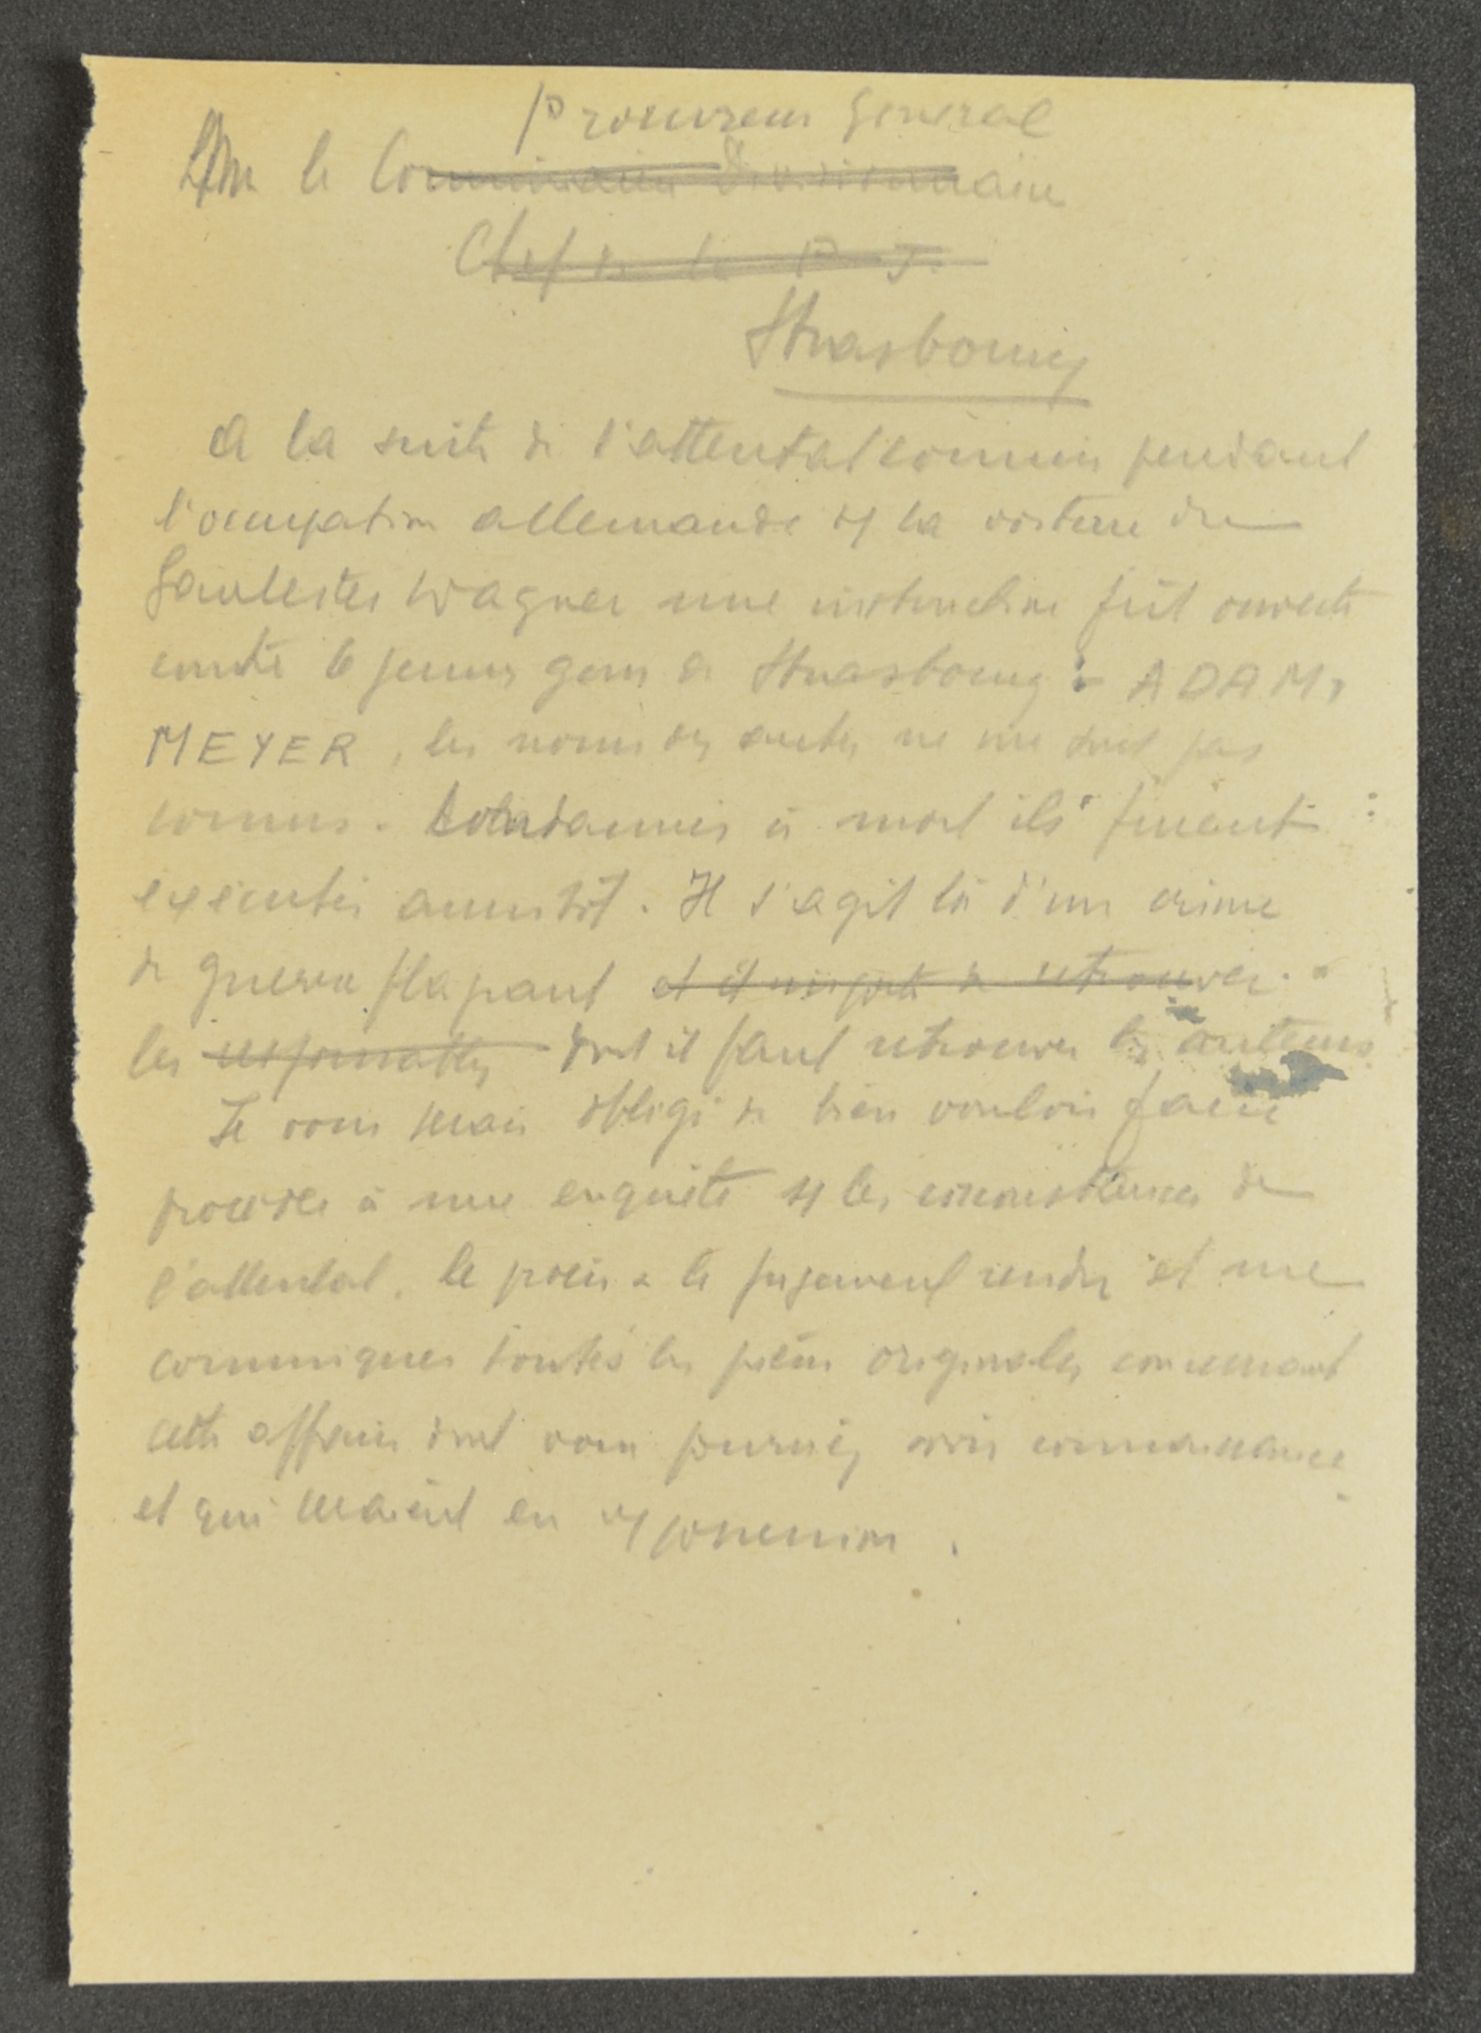 Procureur General
M le Commissaire Divisionnaire
Chef de la P. J.
Strasbourg
A la suite de l'attentat commis pendant
l'occupation allemande s/ la voiture du
Gauleiter Wagner une instruction fût ouverte
contre le jeunes gens de Strasbourg : ADAM,
MEYER, les noms des autres ne me sont pas
connus. Condamnés à mort ils furent
exécutés aussitôt. Il s'agit là d'un crime
de guerre flapant et il importe de retrouver
les responsables dont il faut retrouver les auteurs
Je vous serais obligé de bien vouloir faire
procéder à une enquête s/ les circonstances de
l'attentat, le procès & le jugement rendu et me
communiquer toutes les pièces originales concernant
cette affaire dont vous pourriez avoir connaissance
et qui seraient en v/ possession.